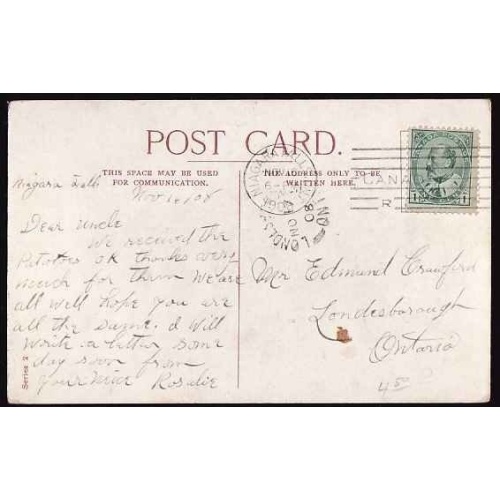 POST CARD.
THIS SPACE MAY BE USED
FOR COMMUNICATION.
THE ADDRESS ONLY TO BE
WRITTEN HERE.
Niagara Falls
Nov 1908
Dear Uncle
We received the
Potatoes ok thanks very
much for them We are
all well hope you are
all the same. I will
write a letter some
day soon from
your niece Rosalie
Mr Edmund Crawford
Londesborough
Ontario
Series 2
NIAGARA FALLS
LONDES
NO
08
ONT
CANADA